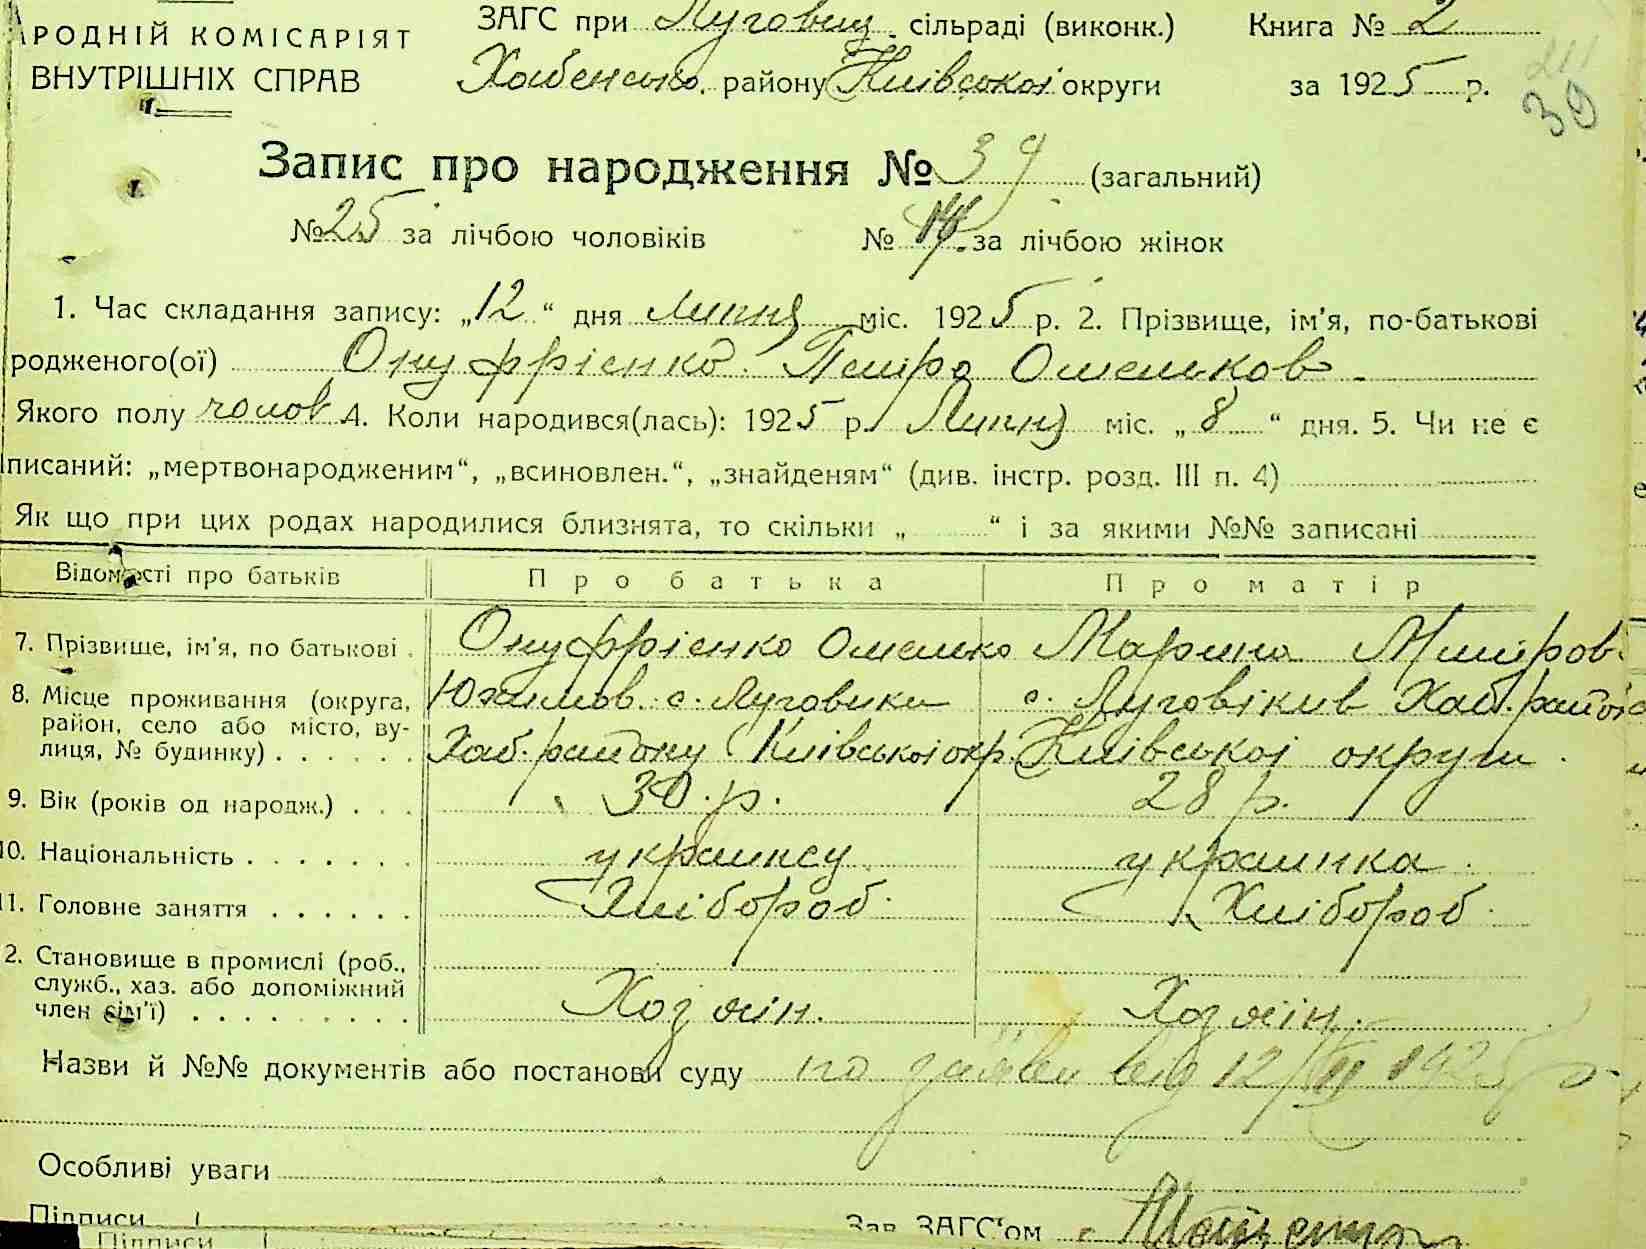 РОДНІЙ КОМІСАРІЯТ
ВНУТРІШНІХ СПРАВ
ЗАГС при Луговиц. сільраді (виконк.) Книга № 2
Хабенсько. району Київської округи за 1925 р.
39
Запис про народження № 39 (загальний)
№ 25 за лічбою чоловіків № за лічбою жінок
1. Час складання запису: „12“ дня липня міс. 1925 р. 2. Прізвище, ім’я, по-батькові
родженого(ої) Онуфрієнко Петро Омельков
Якого полу чолов 4. Коли народився(лась): 1925 р. Липня міс. „8“ дня. 5. Чи не є
писаний: „мертвонародженим“, „всиновлен.“, „знайденям“ (див. інстр. розд. III п. 4)
Як що при цих родах народилися близнята, то скільки „ “ і за якими №№ записані
Відомості про батьків Про батька Про матір
7. Прізвище, ім’я, по батькові Онуфрієнко Омелько Марина Дмитров.
8. Місце проживання (округа, Юхимов. с. Луговики с. Луговіків Хаб. района
район, село або місто, ву-
лиця, № будинку) Хаб. району Київської окр. Київської округи.
9. Вік (років од народж.) 30 р. 28 р.
10. Національність украинец украинка.
11. Головне заняття Хлібороб. Хлібороб.
2. Становище в промислі (роб.,
служб., хаз. або допоміжний
член сім’ї) Хозяїн. Хозяїн.
Назви й №№ документів або постанови суду по заяві від 12/VII 1925 р.
Особливі уваги
Підписи Зав. ЗАГС‘ом
Підписи